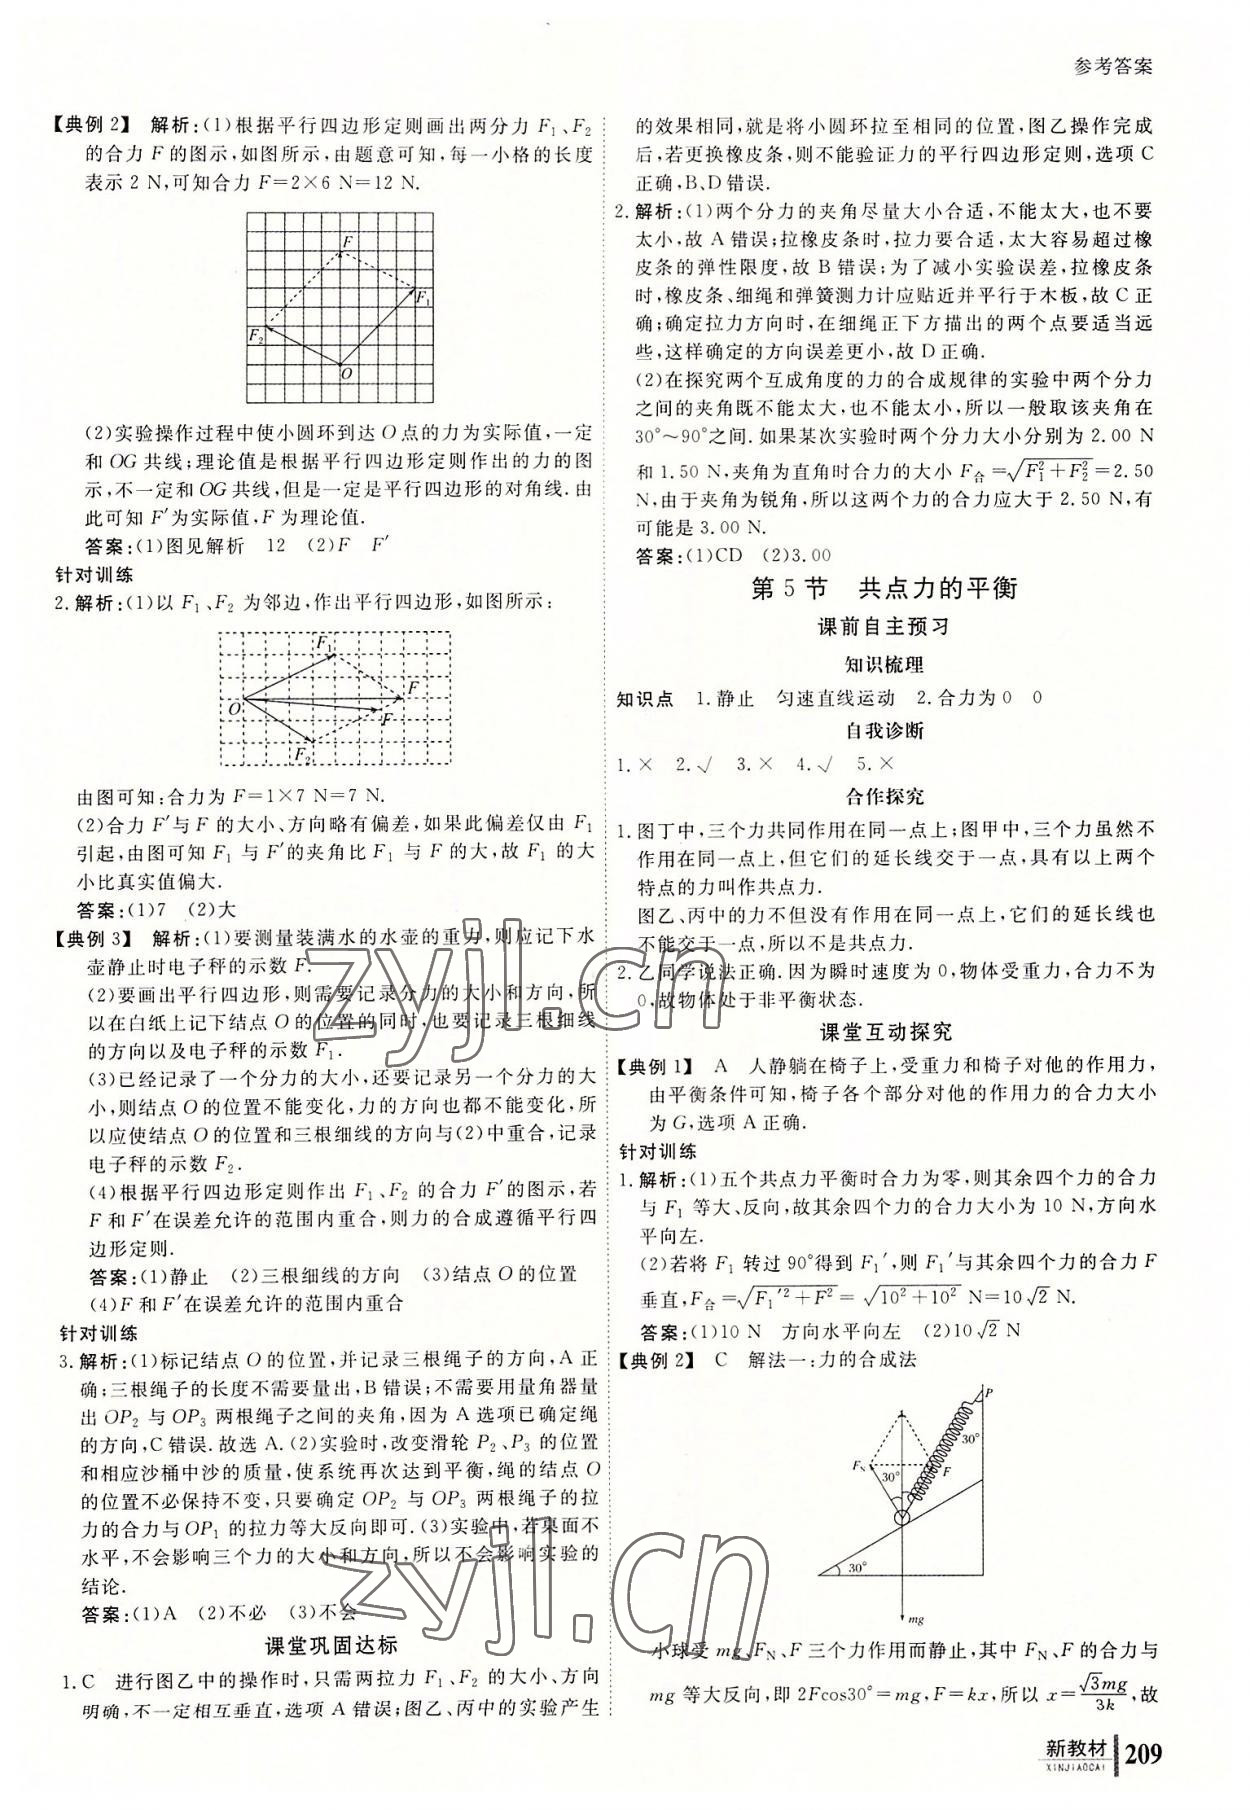 参考答案
【典例2】 解析:(1)根据平行四边形定则画出两分力 F₁、F₂
的合力 F 的图示,如图所示,由题意可知,每一小格的长度
表示 2 N,可知合力 F=2×6 N=12 N.
F
F₁
F₂
O
(2)实验操作过程中使小圆环到达 O 点的力为实际值,一定
和 OG 共线;理论值是根据平行四边形定则作出的力的图
示,不一定和 OG 共线,但是一定是平行四边形的对角线.由
此可知 F′为实际值,F 为理论值.
答案:(1)图见解析 12 (2)F F′
针对训练
2.解析:(1)以 F₁、F₂ 为邻边,作出平行四边形,如图所示:
F₁
F
O
F
F₂
由图可知:合力为 F=1×7 N=7 N.
(2)合力 F′与 F 的大小、方向略有偏差,如果此偏差仅由 F₁
引起,由图可知 F₁ 与 F′的夹角比 F₁ 与 F 的大,故 F₁ 的大
小比真实值偏大.
答案:(1)7 (2)大
【典例3】 解析:(1)要测量装满水的水壶的重力,则应记下水
壶静止时电子秤的示数 F.
(2)要画出平行四边形,则需要记录分力的大小和方向,所
以在白纸上记下结点 O 的位置的同时,也要记录三根细线
的方向以及电子秤的示数 F₁.
(3)已经记录了一个分力的大小,还要记录另一个分力的大
小,则结点 O 的位置不能变化,力的方向也都不能变化,所
以应使结点 O 的位置和三根细线的方向与(2)中重合,记录
电子秤的示数 F₂.
(4)根据平行四边形定则作出 F₁、F₂ 的合力 F′的图示,若
F 和 F′在误差允许的范围内重合,则力的合成遵循平行四
边形定则.
答案:(1)静止 (2)三根细线的方向 (3)结点 O 的位置
(4)F 和 F′在误差允许的范围内重合
针对训练
3.解析:(1)标记结点 O 的位置,并记录三根绳子的方向,A 正
确;三根绳子的长度不需要量出,B 错误;不需要用量角器量
出 OP₂ 与 OP₃ 两根绳子之间的夹角,因为 A 选项已确定绳
的方向,C 错误.故选 A.(2)实验时,改变滑轮 P₂、P₃ 的位置
和相应沙桶中沙的质量,使系统再次达到平衡,绳的结点 O
的位置不必保持不变,只要确定 OP₂ 与 OP₃ 两根绳子的拉
力的合力与OP₁ 的拉力等大反向即可.(3)实验中,若桌面不
水平,不会影响三个力的大小和方向,所以不会影响实验的
结论.
答案:(1)A (2)不必 (3)不会
课堂巩固达标
1.C 进行图乙中的操作时,只需两拉力 F₁、F₂ 的大小、方向
明确,不一定相互垂直,选项 A 错误;图乙、丙中的实验产生
的效果相同,就是将小圆环拉至相同的位置,图乙操作完成
后,若更换橡皮条,则不能验证力的平行四边形定则,选项 C
正确,B、D 错误.
2.解析:(1)两个分力的夹角尽量大小合适,不能太大,也不要
太小,故 A 错误;拉橡皮条时,拉力要合适,太大容易超过橡
皮条的弹性限度,故 B 错误;为了减小实验误差,拉橡皮条
时,橡皮条、细绳和弹簧测力计应贴近并平行于木板,故 C 正
确;确定拉力方向时,在细绳正下方描出的两个点要适当远
些,这样确定的方向误差更小,故 D 正确.
(2)在探究两个互成角度的力的合成规律的实验中两个分力
之间的夹角既不能太大,也不能太小,所以一般取该夹角在
30°~90°之间.如果某次实验时两个分力大小分别为 2.00 N
和 1.50 N,夹角为直角时合力的大小 F合=√(F₁²+F₂²)=2.50
N,由于夹角为锐角,所以这两个力的合力应大于 2.50 N,有
可能是 3.00 N.
答案:(1)CD (2)3.00
第 5 节 共点力的平衡
课前自主预习
知识梳理
知识点 1.静止 匀速直线运动 2.合力为0 0
自我诊断
1.× 2.√ 3.× 4.√ 5.×
合作探究
1.图丁中,三个力共同作用在同一点上;图甲中,三个力虽然不
作用在同一点上,但它们的延长线交于一点,具有以上两个
特点的力叫作共点力.
图乙、丙中的力不但没有作用在同一点上,它们的延长线也
不能交于一点,所以不是共点力.
2.乙同学说法正确.因为瞬时速度为 0,物体受重力,合力不为
0,故物体处于非平衡状态.
课堂互动探究
【典例1】 A 人静躺在椅子上,受重力和椅子对他的作用力,
由平衡条件可知,椅子各个部分对他的作用力的合力大小
为 G,选项 A 正确.
针对训练
1.解析:(1)五个共点力平衡时合力为零,则其余四个力的合力
与 F₁ 等大、反向,故其余四个力的合力大小为 10 N,方向水
平向左.
(2)若将 F₁ 转过90°得到 F₁′,则 F₁′与其余四个力的合力 F
垂直,F合=√(F₁′²+F²)=√(10²+10²) N=10√2 N.
答案:(1)10 N 方向水平向左 (2)10√2 N
【典例2】 C 解法一:力的合成法
P
30°
F_N
F
30°
30°
mg
小球受 mg、F_N、F 三个力作用而静止,其中 F_N、F 的合力与
mg 等大反向,即 2Fcos30°=mg,F=kx,所以 x=√3mg/3k,故
新教材 209
XINJIAOCAI
zyjl.cn
zyjl.cn